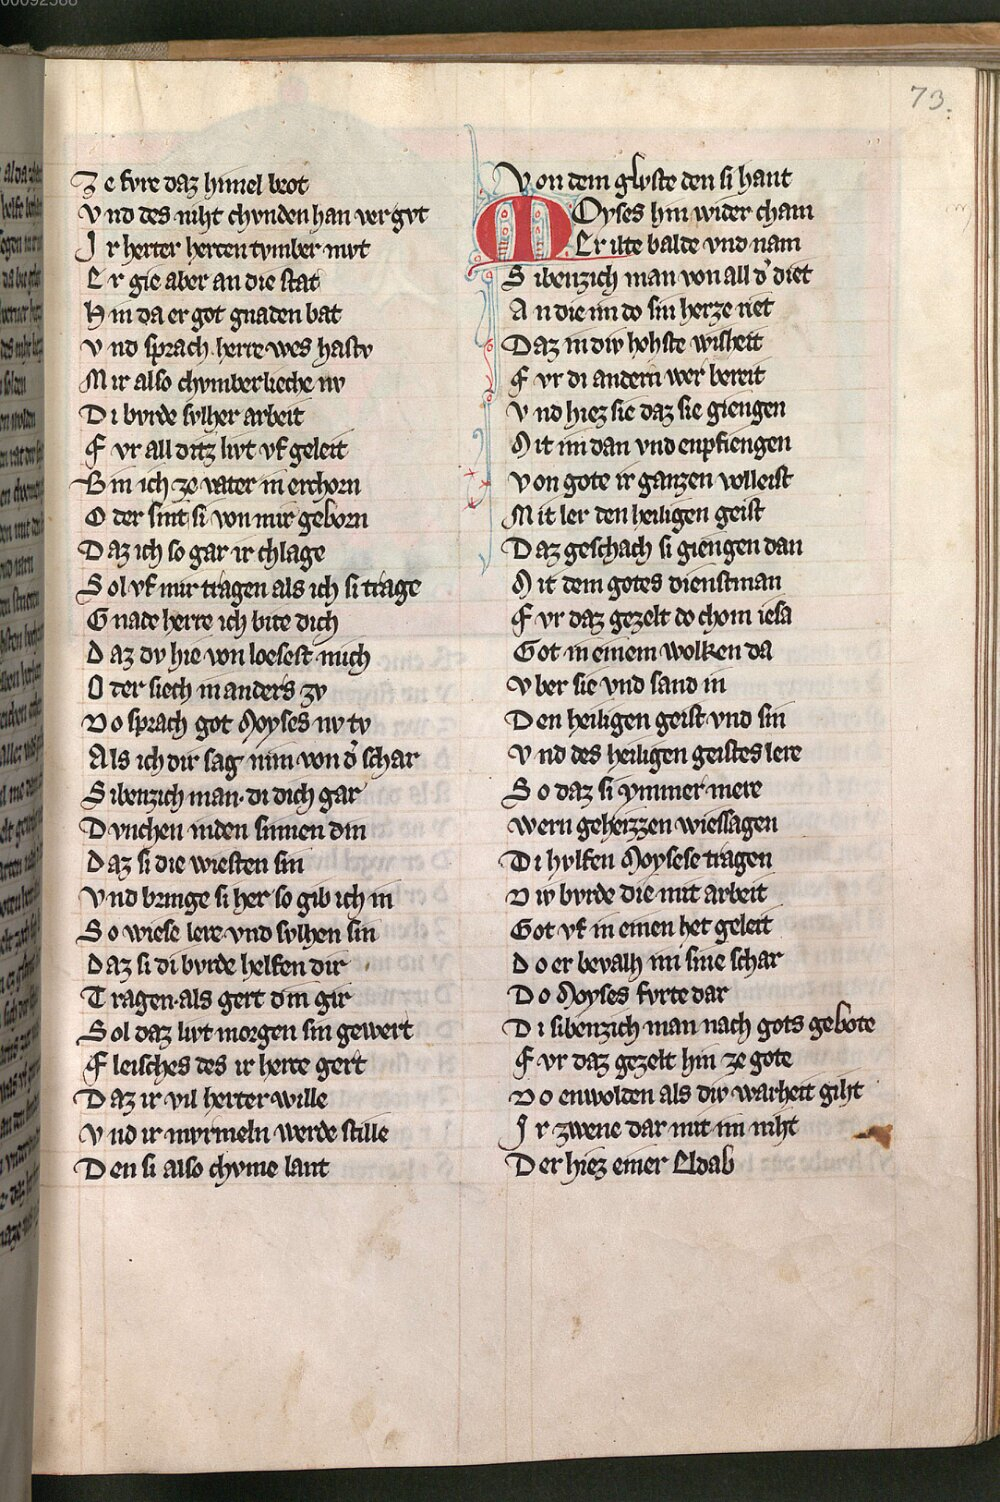 73.
Ze fvre daz himel brot
Vnd des niht chvnden han vergvt
Ir herter herten tvmber mvt
Er gie aber an die stat
Hin da er got gnaden bat
Vnd sprach herre wes hastv
Mir also chvmberlieche nv
Di bvrde solher arbeit
Fvr all ditz livt vf geleit
Bin ich ze vater in erchorn
Oder sint si von mir geborn
Daz ich so gar ir chlage
Sol vf mir tragen als ich si trage
Gnade herre ich bite dich
Daz dv hie von loesest mich
Oder siech in anders zv
Do sprach got Moyses nv tv
Als ich dir sag nim von d' schar
Sibenzich man di dich gar
Dvnchen in den sinnen din
Daz si die wiesten sin
Vnd bringe si her so gib ich in
So wiese lere vnd solhen sin
Daz si di bvrde helfen dir
Tragen als gert din gir
Sol daz livt morgen sin gewert
Fleisches des ir herte gert
Daz ir vil herter wille
Vnd ir mvrmeln werde stille
Den si also chvme lant
Von dem glvste den si hant
Moyses hin wider cham
Er ilte balde vnd nam
Sibenzich man von all d' diet
An die im do sin herze riet
Daz in div hohste wisheit
Fvr di andern wer bereit
Vnd hiez sie daz sie giengen
Mit im dan vnd enpfiengen
Von gote ir ganzen volleist
Mit ler den heiligen geist
Daz geschach si giengen dan
Mit dem gotes dienstman
Fvr daz gezelt do chom iesa
Got in einem wolken da
Vber sie vnd sand in
Den heiligen geist vnd sin
Vnd des heiligen geistes lere
So daz si ymmer mere
Wern geheizzen wiessagen
Di hvlfen Moysese tragen
Div bvrde die mit arbeit
Got vf in einen het geleit
Do er bevalh im sine schar
Do Moyses fvrte dar
Di sibenzich man nach gots gebote
Fvr daz gezelt hin ze gote
Do enwolden als div warheit giht
Ir zwene dar mit im niht
Der hiez einer Eldab